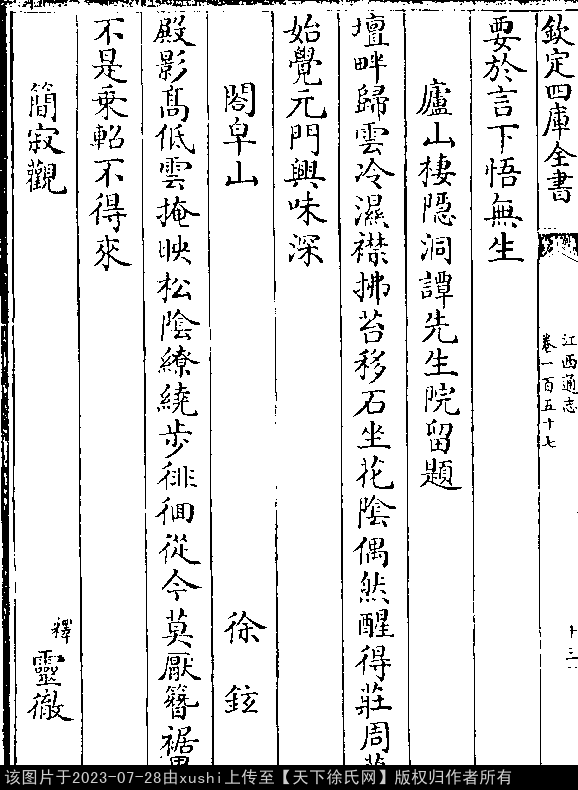 欽定四庫全書
江西通志
卷一百五十七
要於言下悟無生
廬山棲隠洞譚先生院留題
壇畔歸雲冷濕襟拂苔移石坐花陰偶然醒得莊周
始覺元門興味深
閤皁山 徐鉉
殿影髙低雲掩映松陰繚繞步徘徊從今莫厭簪裾
不是乗軺不得來
簡寂觀 釋靈徹
该图片于2023-07-28由xushi上传至【天下徐氏网】版权归作者所有